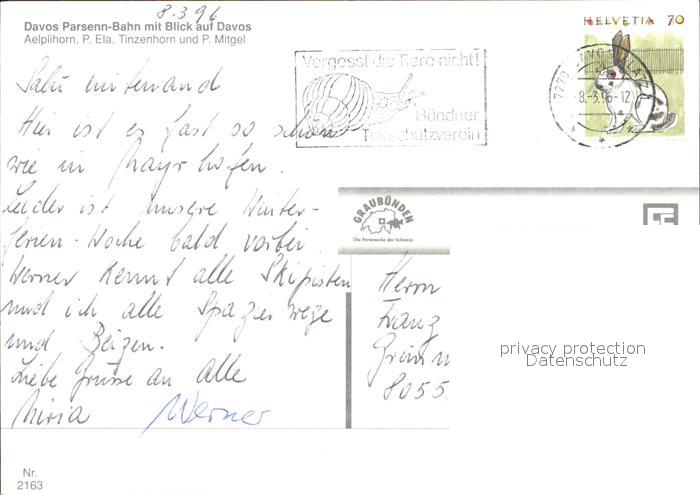 8.3.96
Davos Parsenn-Bahn mit Blick auf Davos
Aelplihorn, P. Ela, Tinzenhorn und P. Mitgel
HELVETIA 70
Vergesst die Tiere nicht!
Bündner
Tierschutzverein
7270 DAVOS PLATZ
-8.-3.96-12
Salü mitenand
Hier ist es fast so schön
wie in Mayrhofen.
Leider ist unsere Winter-
ferien-Woche bald vorbei.
Werner kennt alle Skipisten
und ich alle Spazierwege
und Beizen.
Liebe Grüsse an alle
Miria Werner
GRAUBÜNDEN
Die Ferienecke der Schweiz
Herrn
Franz
8055
privacy protection
Datenschutz
Nr.
2163